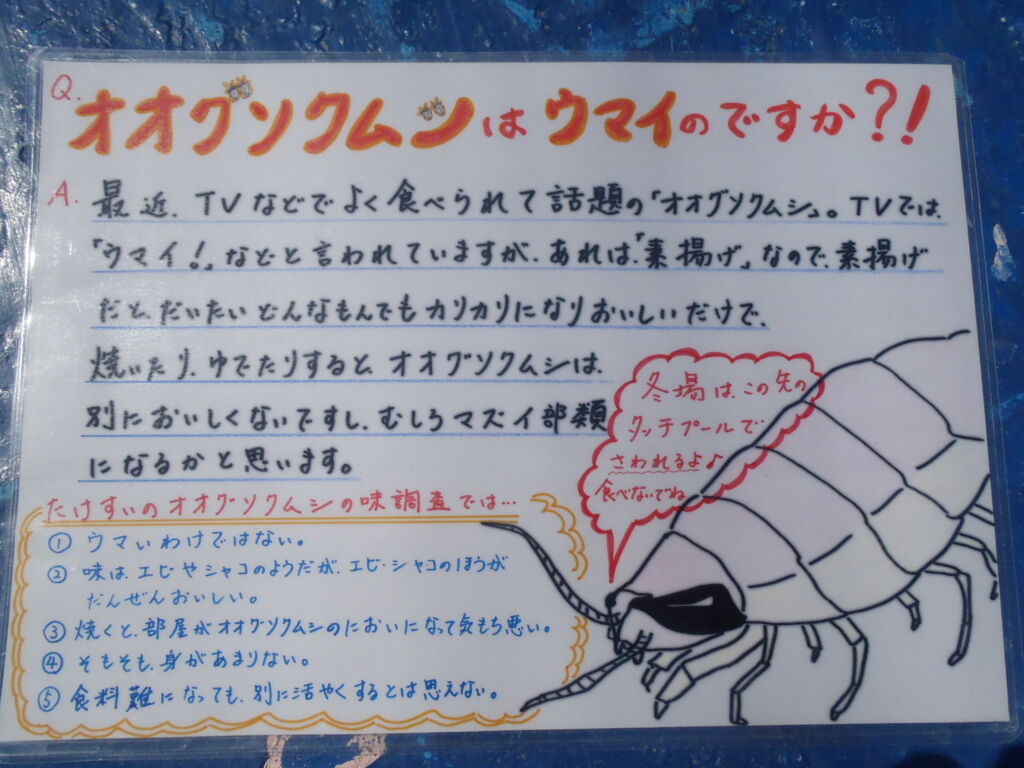 Q. オオグソクムシはウマイのですか?!
A. 最近、TVなどでよく食べられて話題の「オオグソクムシ」。TVでは、
「ウマイ!」などと言われていますが、あれは、「素揚げ」なので、素揚げ
だと、だいたいどんなもんでもカリカリになりおいしいだけで、
焼いたり、ゆでたりすると、オオグソクムシは、
別においしくないですし、むしろマズイ部類
になるかと思います。
冬場は、この先の
タッチプールで
さわれるよ♪
食べないでね
たけすいのオオグソクムシの味調査では…
① ウマいわけではない。
② 味は、エビやシャコのようだが、エビ・シャコのほうが
だんぜんおいしい。
③ 焼くと、部屋がオオグソクムシのにおいになって気もち悪い。
④ そもそも、身があまりない。
⑤ 食料難になっても、別に活やくするとは思えない。